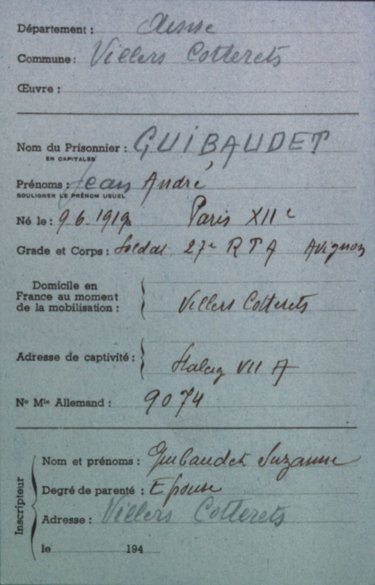 Département : Aisne
Commune : Villers Cotterets
Œuvre :
Nom du Prisonnier : GUIBAUDET
EN CAPITALES
Prénoms : Jean André
SOULIGNER LE PRÉNOM USUEL
Né le : 9.6.1919 Paris XIIe
Grade et Corps : Soldat 27e R T A Avignon
Domicile en
France au moment
de la mobilisation : Villers Cotterets
Adresse de captivité : Stalag VII A
No Mle Allemand : 9074
Inscripteur
Nom et prénoms : Guibaudet Suzanne
Degré de parenté : Epouse
Adresse : Villers Cotterets
le 194